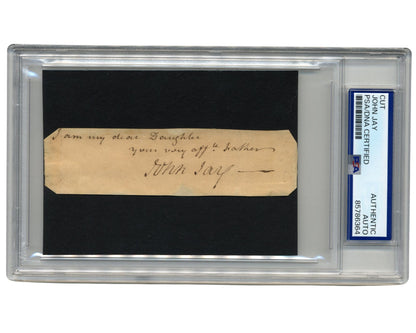 I am my dear Daughter
your very aff.te Father
John Jay —
CUT
JOHN JAY
PSA/DNA CERTIFIED
PSA
AUTHENTIC
AUTO
85786364